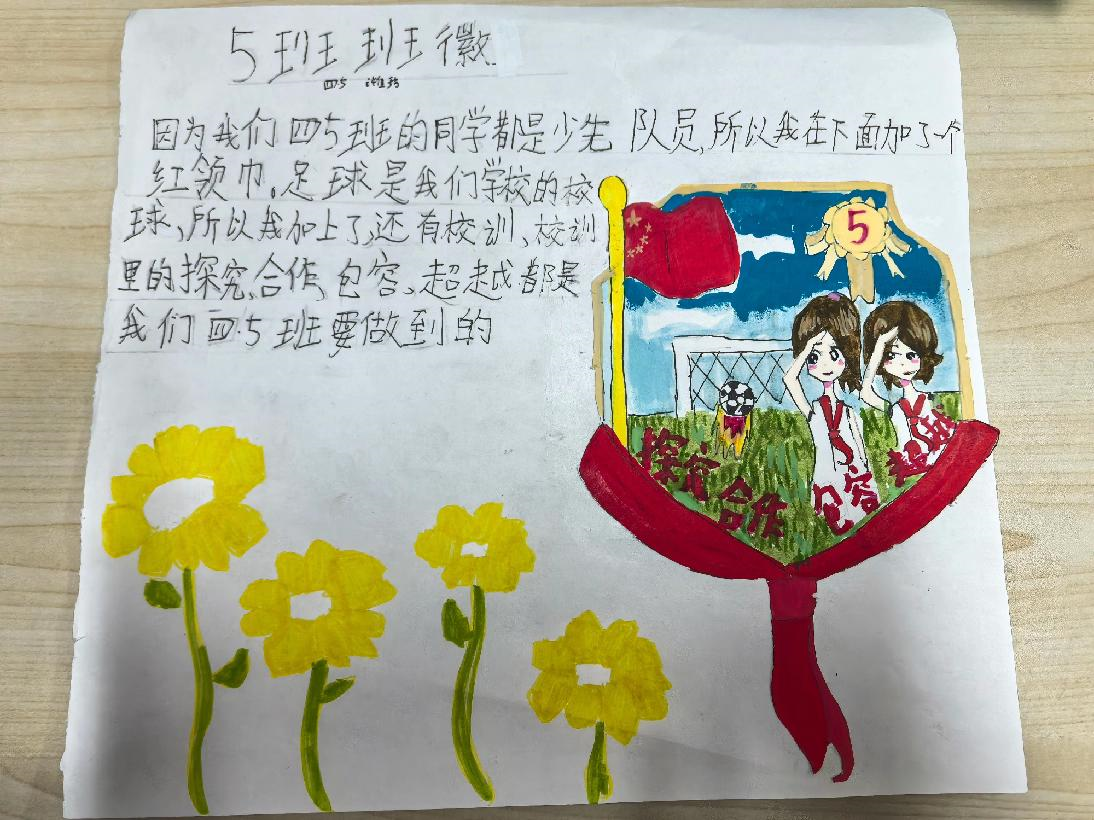 5班班徽
四5
因为我们四5班的同学都是少先队员,所以我在下面加了一个
红领巾。足球是我们学校的校
球,所以我加上了,还有校训、校训
里的探究、合作、包容、超越都是
我们四5班要做到的
5
探究 合作 包容 超越